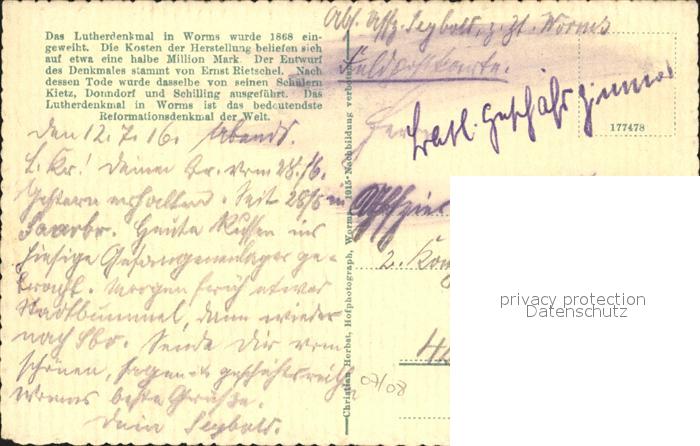 Das Lutherdenkmal in Worms wurde 1868 ein-
geweiht. Die Kosten der Herstellung beliefen sich
auf etwa eine halbe Million Mark. Der Entwurf
des Denkmales stammt von Ernst Rietschel. Nach
dessen Tode wurde dasselbe von seinen Schülern
Kietz, Donndorf und Schilling ausgeführt. Das
Lutherdenkmal in Worms ist das bedeutendste
Reformationsdenkmal der Welt.
Abs. Seybold, z. Zt. Worms
Feldpostkarte.
177478
Christian Herbst, Hofphotograph, Worms. 1915 - Nachbildung verboten
den 12.7.16. Abends.
L. Kr! Deine Kr. vom 28./6.
gestern erhalten. Seit 28/6 in
Saarbr. Heute Russen ins
hiesige Gefangenenlager ge-
bracht. Morgen früh etwas
Stadtbummel, dann wieder
nach Sbr. Sende Dir vom
schönen, sagen- & geschichtsreichen
Worms beste Grüße.
Dein Seybold.
Herrn
2. Kom
07/08
privacy protection
Datenschutz